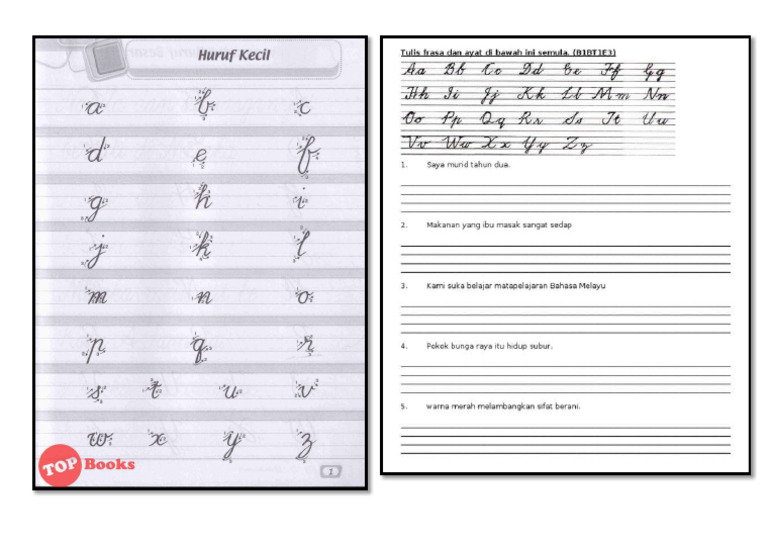 Huruf Kecil
a b c
d e f
g h i
j k l
m n o
p q r
s t u v
w x y z
TOP Books
1
Tulis frasa dan ayat di bawah ini semula. (B1BT1E3)
Aa Bb Cc Dd Ee Ff Gg
Hh Ii Jj Kk Ll Mm Nn
Oo Pp Qq Rr Ss Tt Uu
Vv Ww Xx Yy Zz
1. Saya murid tahun dua.
2. Makanan yang ibu masak sangat sedap
3. Kami suka belajar matapelajaran Bahasa Melayu
4. Pokok bunga raya itu hidup subur.
5. warna merah melambangkan sifat berani.